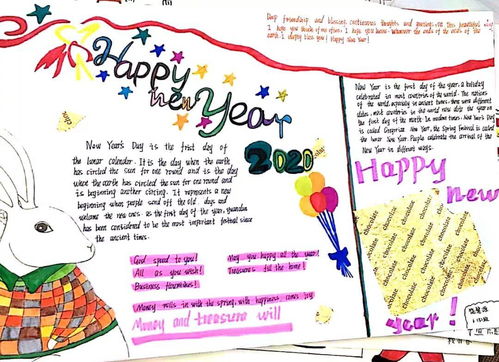 Deep friendship and blessing, continuous thoughts and greetings, on this beautiful day
I hope you think of me often. I hope you know. Whenever the ends of the ends of the
earth. I always bless you! Happy New Year!
Happy
new Year
2020
New Year's Day is the first day of
the lunar calendar. It is the day when the earth
has circled the sun for one round and is the day
when the earth has circled the sun for one round and
is beginning another circling. It represents a new
beginning when people send off the old days and
welcome the new ones. As the first day of the year,
has been considered to be the most important festival since
the ancient times.
God speed to you!
All as you wish!
Business flourishes!
May you happy all the year!
Treasures fill the home!
Money rolls in with the spring, with happiness comes joy
Money and treasure will
New Year is the first day of the year, a holiday
celebrated in most countries of the world. The nations
of the world, especially in ancient times, there were different
dates, most countries in the world now date the year on
the first day of the month. In modern times, New Year's Day
is called Gregorian New Year, the Spring Festival is called
the lunar New Year. People celebrate the arrival of the
New Year in different ways.
Happy
new
year!
chocolate